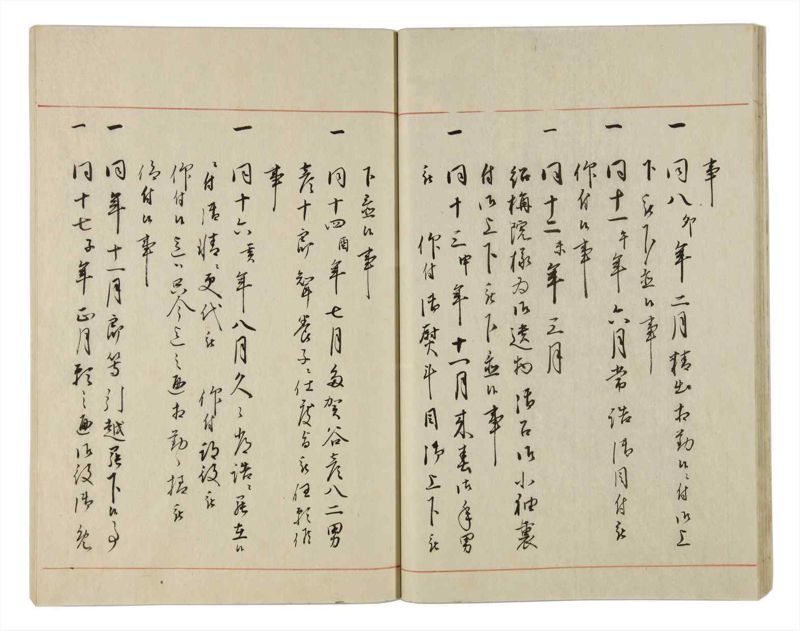 事
一同八卯年二月精出相勤候ニ付御上
下被下置候事
一同十一午年六月常詰御目付被
仰付候事
一同十二未年三月
紹梅院様為御遺物御召御小袖裏
付御上下被下置候事
一同十三申年十一月来春御年男
被 仰付御熨斗目御上下被
下置候事
一同十四酉年七月多賀谷彦八二男
彦十郎聟養子ニ仕度旨被任願仰
事
一同十六亥年八月久々常詰ニ罷在候
ニ付御情ニ更代被 仰付
仰付候迄ハ只今迄之通相勤
付候事
一同年十一月郎等引越罷下候事
一同十七子年正月願之通御役御免